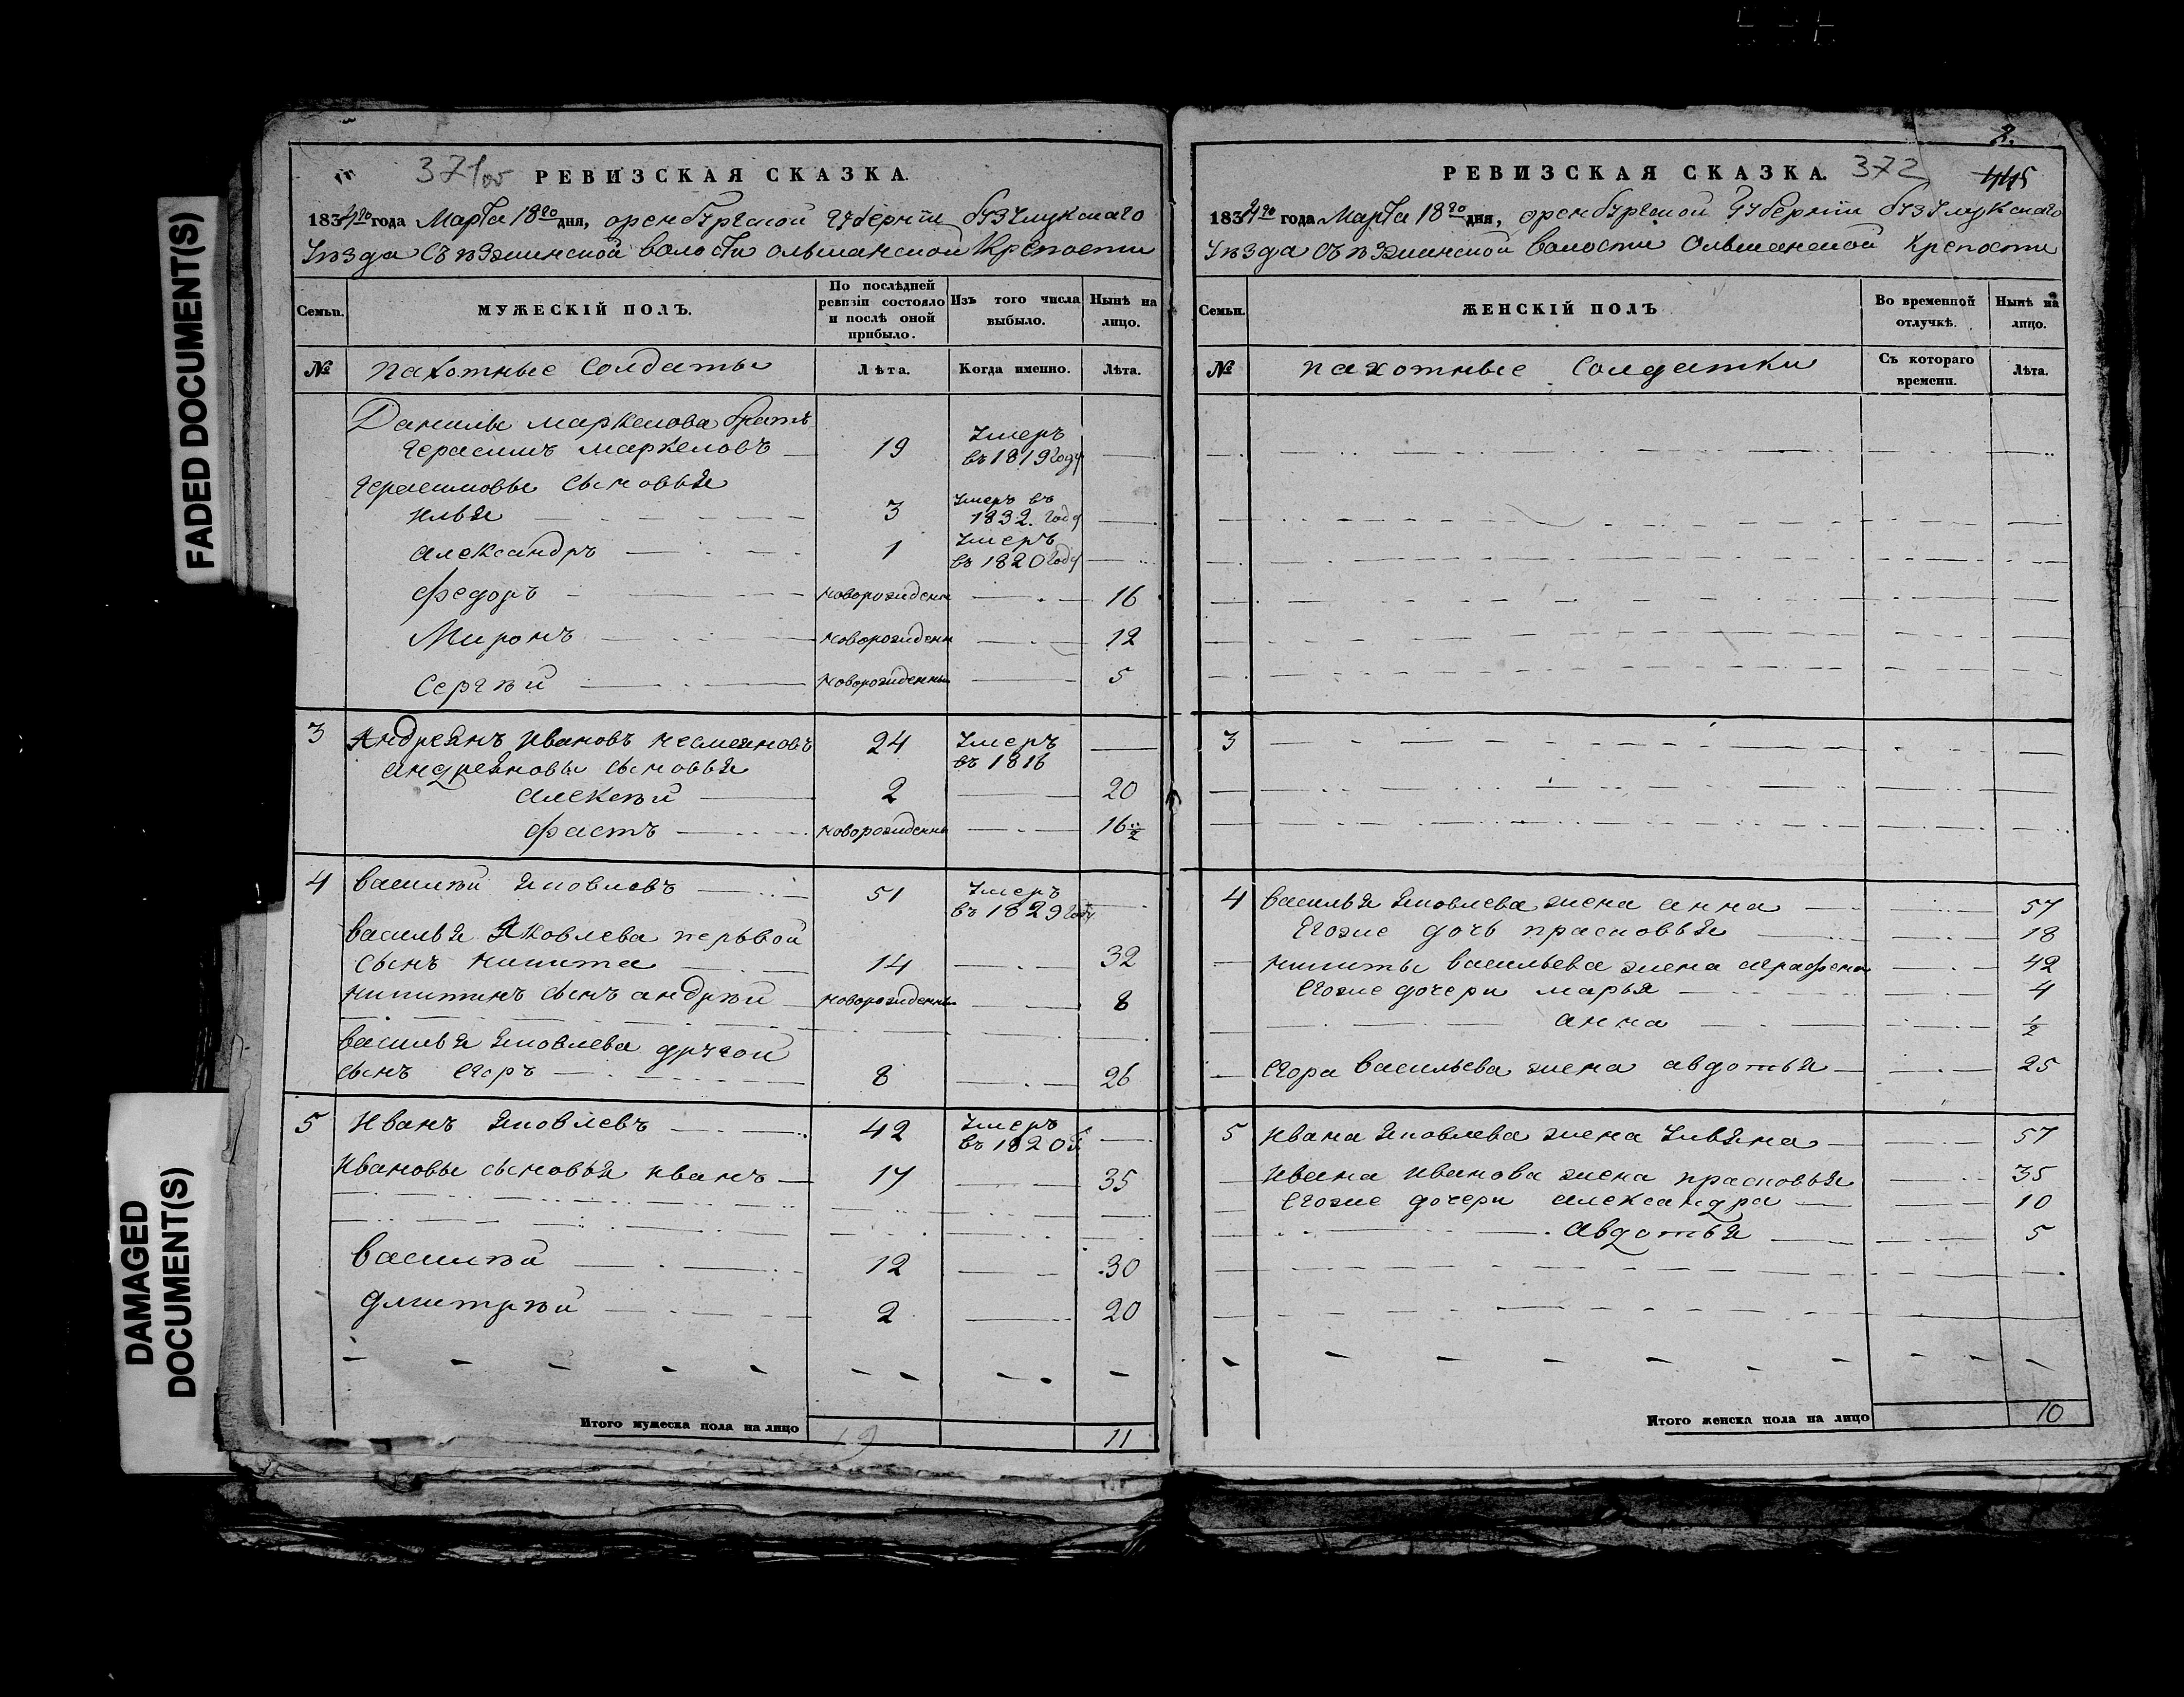 FADED DOCUMENT(S)
DAMAGED
DOCUMENT(S)
371об
РЕВИЗСКАЯ СКАЗКА.
1834го года Марта 18го дня, оренбургской губернии бузулукскаго
уѣзда съѣзжинской волости ольшанской Крепости
Семьи.
МУЖЕСКІЙ ПОЛЪ.
По послѣдней ревизіи состояло и послѣ оной прибыло.
Изъ того числа выбыло.
Нынѣ на лицо.
№ пахотные солдаты Лѣта. Когда именно. Лѣта.
Данилы маркелова братъ
герасимъ маркеловъ 19 умеръ въ 1819 году
герасимовы сыновья
илья 3 умеръ въ 1832. году
александръ 1 умеръ въ 1820 году
федоръ новорожденн 16
Миронъ новорожденн 12
сергѣй новорожденны 5
3 Андреянъ ивановъ несмеяновъ 24 умеръ въ 1816
андреяновы сыновья
алексѣй 2 20
фастъ новорожденны 16 1/2
4 василѣй яковлевъ 51 умеръ въ 1829 году
василья Яковлева первой
сынъ никита 14 32
никитинъ сынъ андрѣй новорожденны 8
василья яковлева другой
сынъ егоръ 8 26
5 иванъ яковлевъ 42 умеръ въ 1820
ивановы сыновья иванъ 17 35
василѣй 12 30
дмитрѣй 2 20
Итого мужеска пола на лицо 19 11
2.
РЕВИЗСКАЯ СКАЗКА. 372 445
1834го года Марта 18го дня, оренбургской губернии бузулукскаго
уѣзда съѣзжинской волости ольшанской крепости
Семьи.
ЖЕНСКІЙ ПОЛЪ
Во временной отлучкѣ.
Нынѣ на лицо.
№ пахотные солдатки Съ котораго времени. Лѣта.
3
4 василья яковлева жена анна 57
егоже дочь прасковья 18
никиты васильева жена аграфена 42
егоже дочери марья 4
анна 1/2
егора васильева жена авдотья 25
5 ивана яковлева жена ульяна 57
ивана иванова жена прасковья 35
егоже дочери александра 10
авдотья 5
Итого женска пола на лицо 10